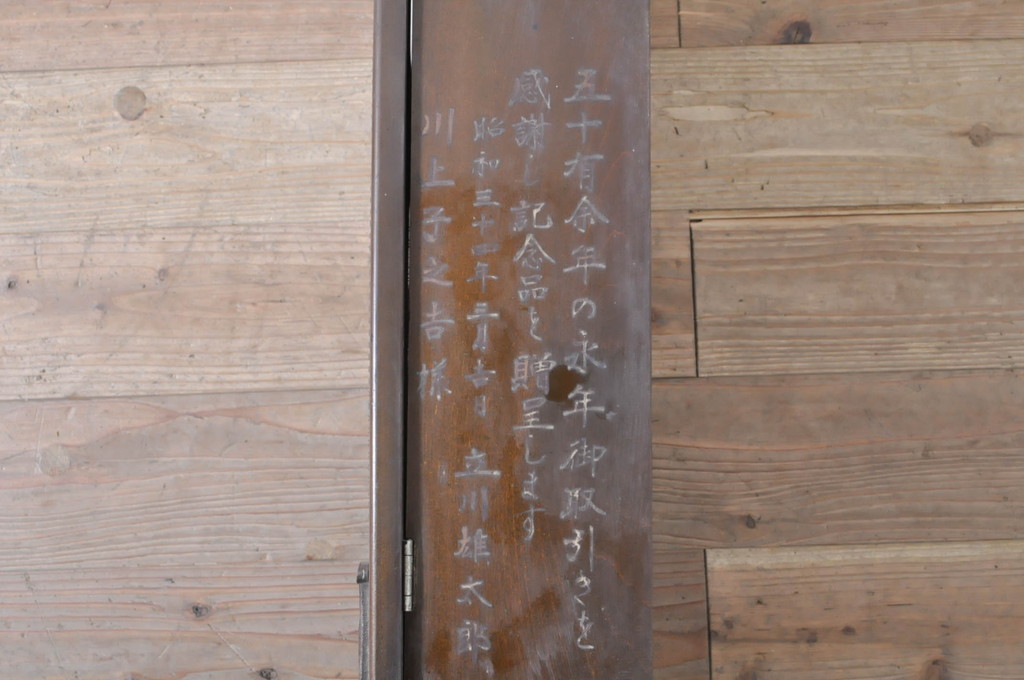 五十有余年の永年御取引きを
感謝し記念品を贈呈します
昭和三十四年三月吉日 立川雄太郎
川上子之吉様